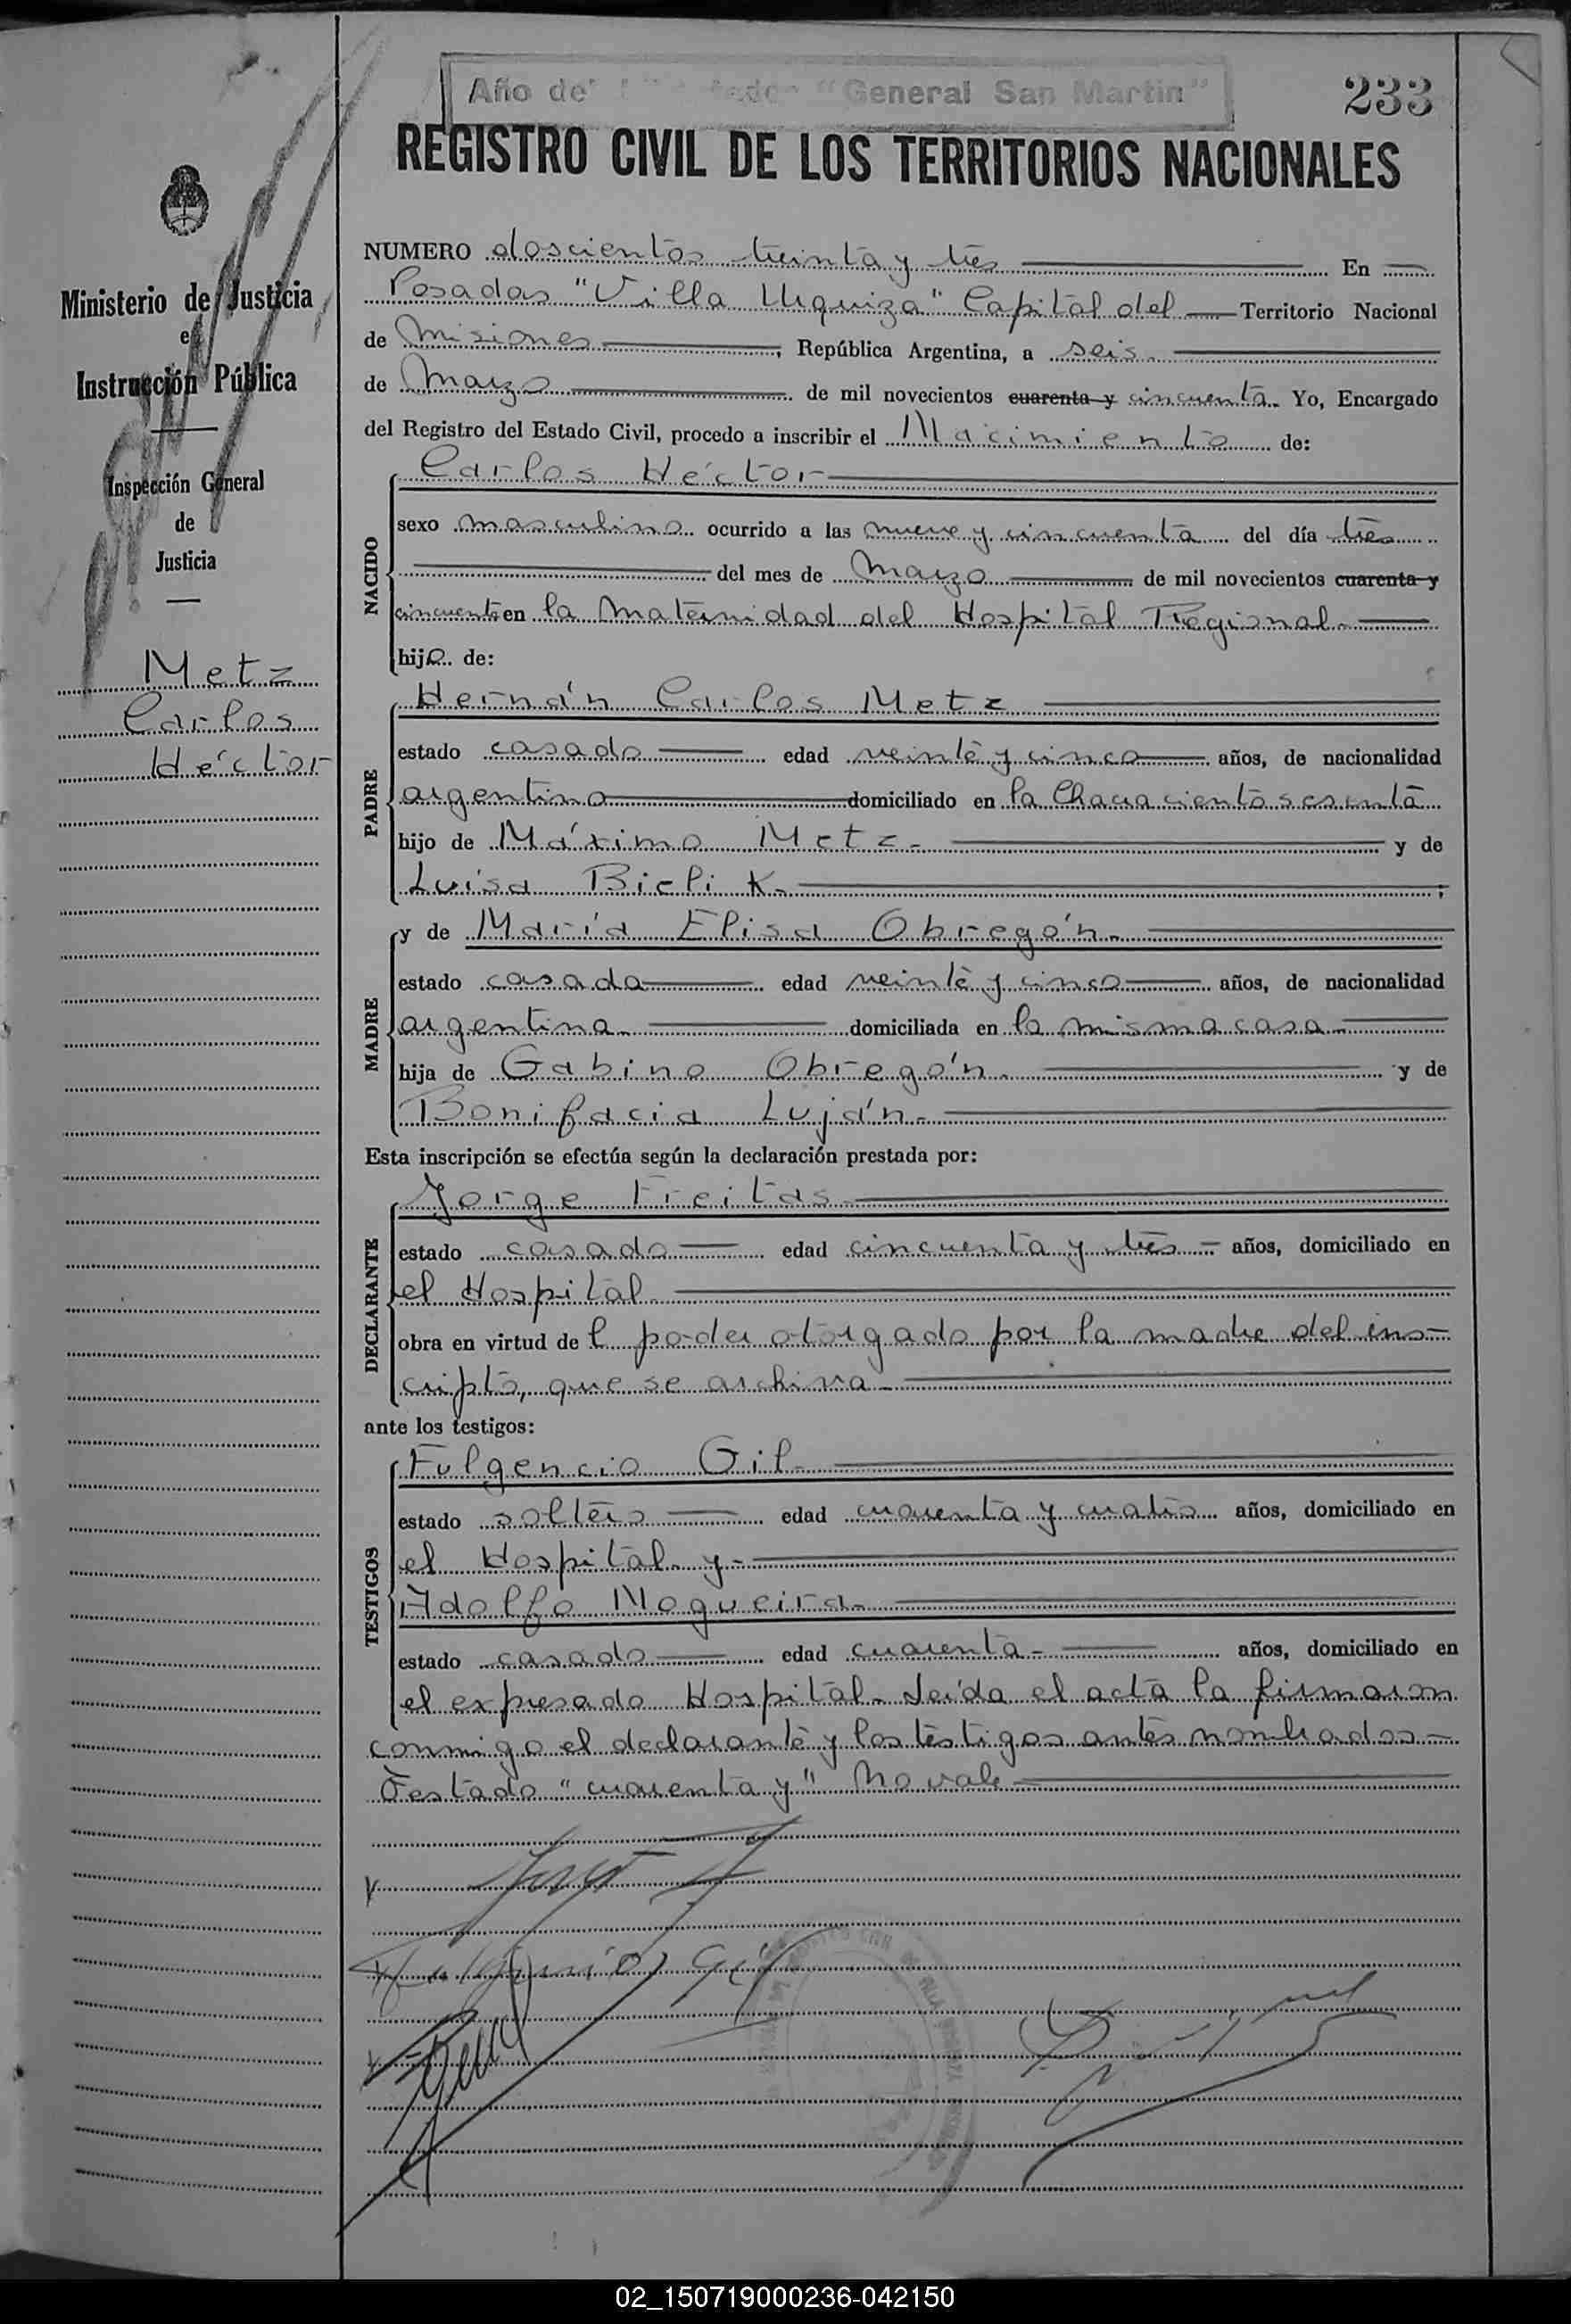 Año del "General San Martin"
233
REGISTRO CIVIL DE LOS TERRITORIOS NACIONALES
Ministerio de Justicia
e
Instrucción Pública
Inspección General
de
Justicia
Metz
Carlos
Héctor
NUMERO doscientos treinta y tres En
Posadas "Villa Urquiza" Capital del Territorio Nacional
de Misiones, República Argentina, a seis
de Marzo de mil novecientos cuarenta y cincuenta. Yo, Encargado
del Registro del Estado Civil, procedo a inscribir el Nacimiento de:
NACIDO
Carlos Héctor
sexo masculino ocurrido a las nueve y cincuenta del día tres
del mes de Marzo de mil novecientos cuarenta y
cincuenta en la Maternidad del Hospital Regional.
hijo de:
PADRE
Hernán Carlos Metz
estado casado edad veinte y cinco años, de nacionalidad
argentino domiciliado en la Chacra ciento sesenta
hijo de Máximo Metz. y de
Luisa Bieli K. ;
MADRE
y de María Elisa Obregón.
estado casada edad veinte y cinco años, de nacionalidad
argentina. domiciliada en la misma casa.
hija de Gabino Obregón. y de
Bonifacia Luján.
Esta inscripción se efectúa según la declaración prestada por:
DECLARANTE
Jorge Freitas
estado casado edad cincuenta y tres años, domiciliado en
el Hospital.
obra en virtud de l poder otorgado por la madre del ins-
cripto, que se archiva.
ante los testigos:
TESTIGOS
Fulgencio Gil.
estado soltero edad cuarenta y cuatro años, domiciliado en
el Hospital y
Adolfo Nogueira.
estado casado edad cuarenta. años, domiciliado en
el expresado Hospital. Leída el acta la firmaron
conmigo el declarante y los testigos antes nombrados.
Testado "cuarenta y" No vale
Fulgencio Gil
02_150719000236-042150